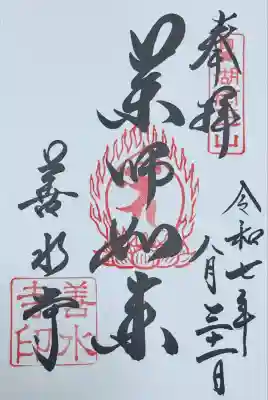 奉拝
令和七年
八月三十一日
薬師如来
善水寺
善水
寺印